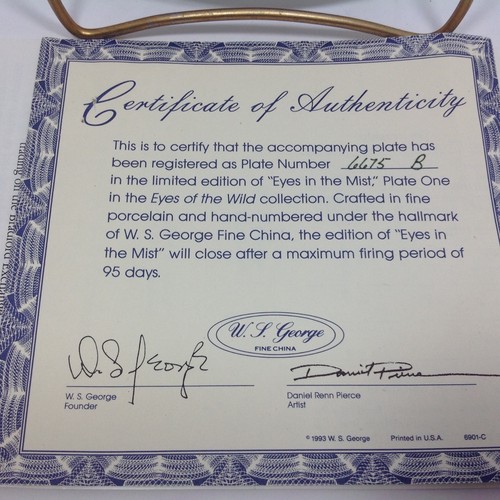 Certificate of Authenticity
This is to certify that the accompanying plate has
been registered as Plate Number 6675 B
in the limited edition of "Eyes in the Mist," Plate One
in the Eyes of the Wild collection. Crafted in fine
porcelain and hand-numbered under the hallmark
of W. S. George Fine China, the edition of "Eyes in
the Mist" will close after a maximum firing period of
95 days.
W. S. George
FINE CHINA
W S George
W. S. George
Founder
Daniel Pierce
Daniel Renn Pierce
Artist
© 1993 W. S. George Printed in U.S.A. 6901-C